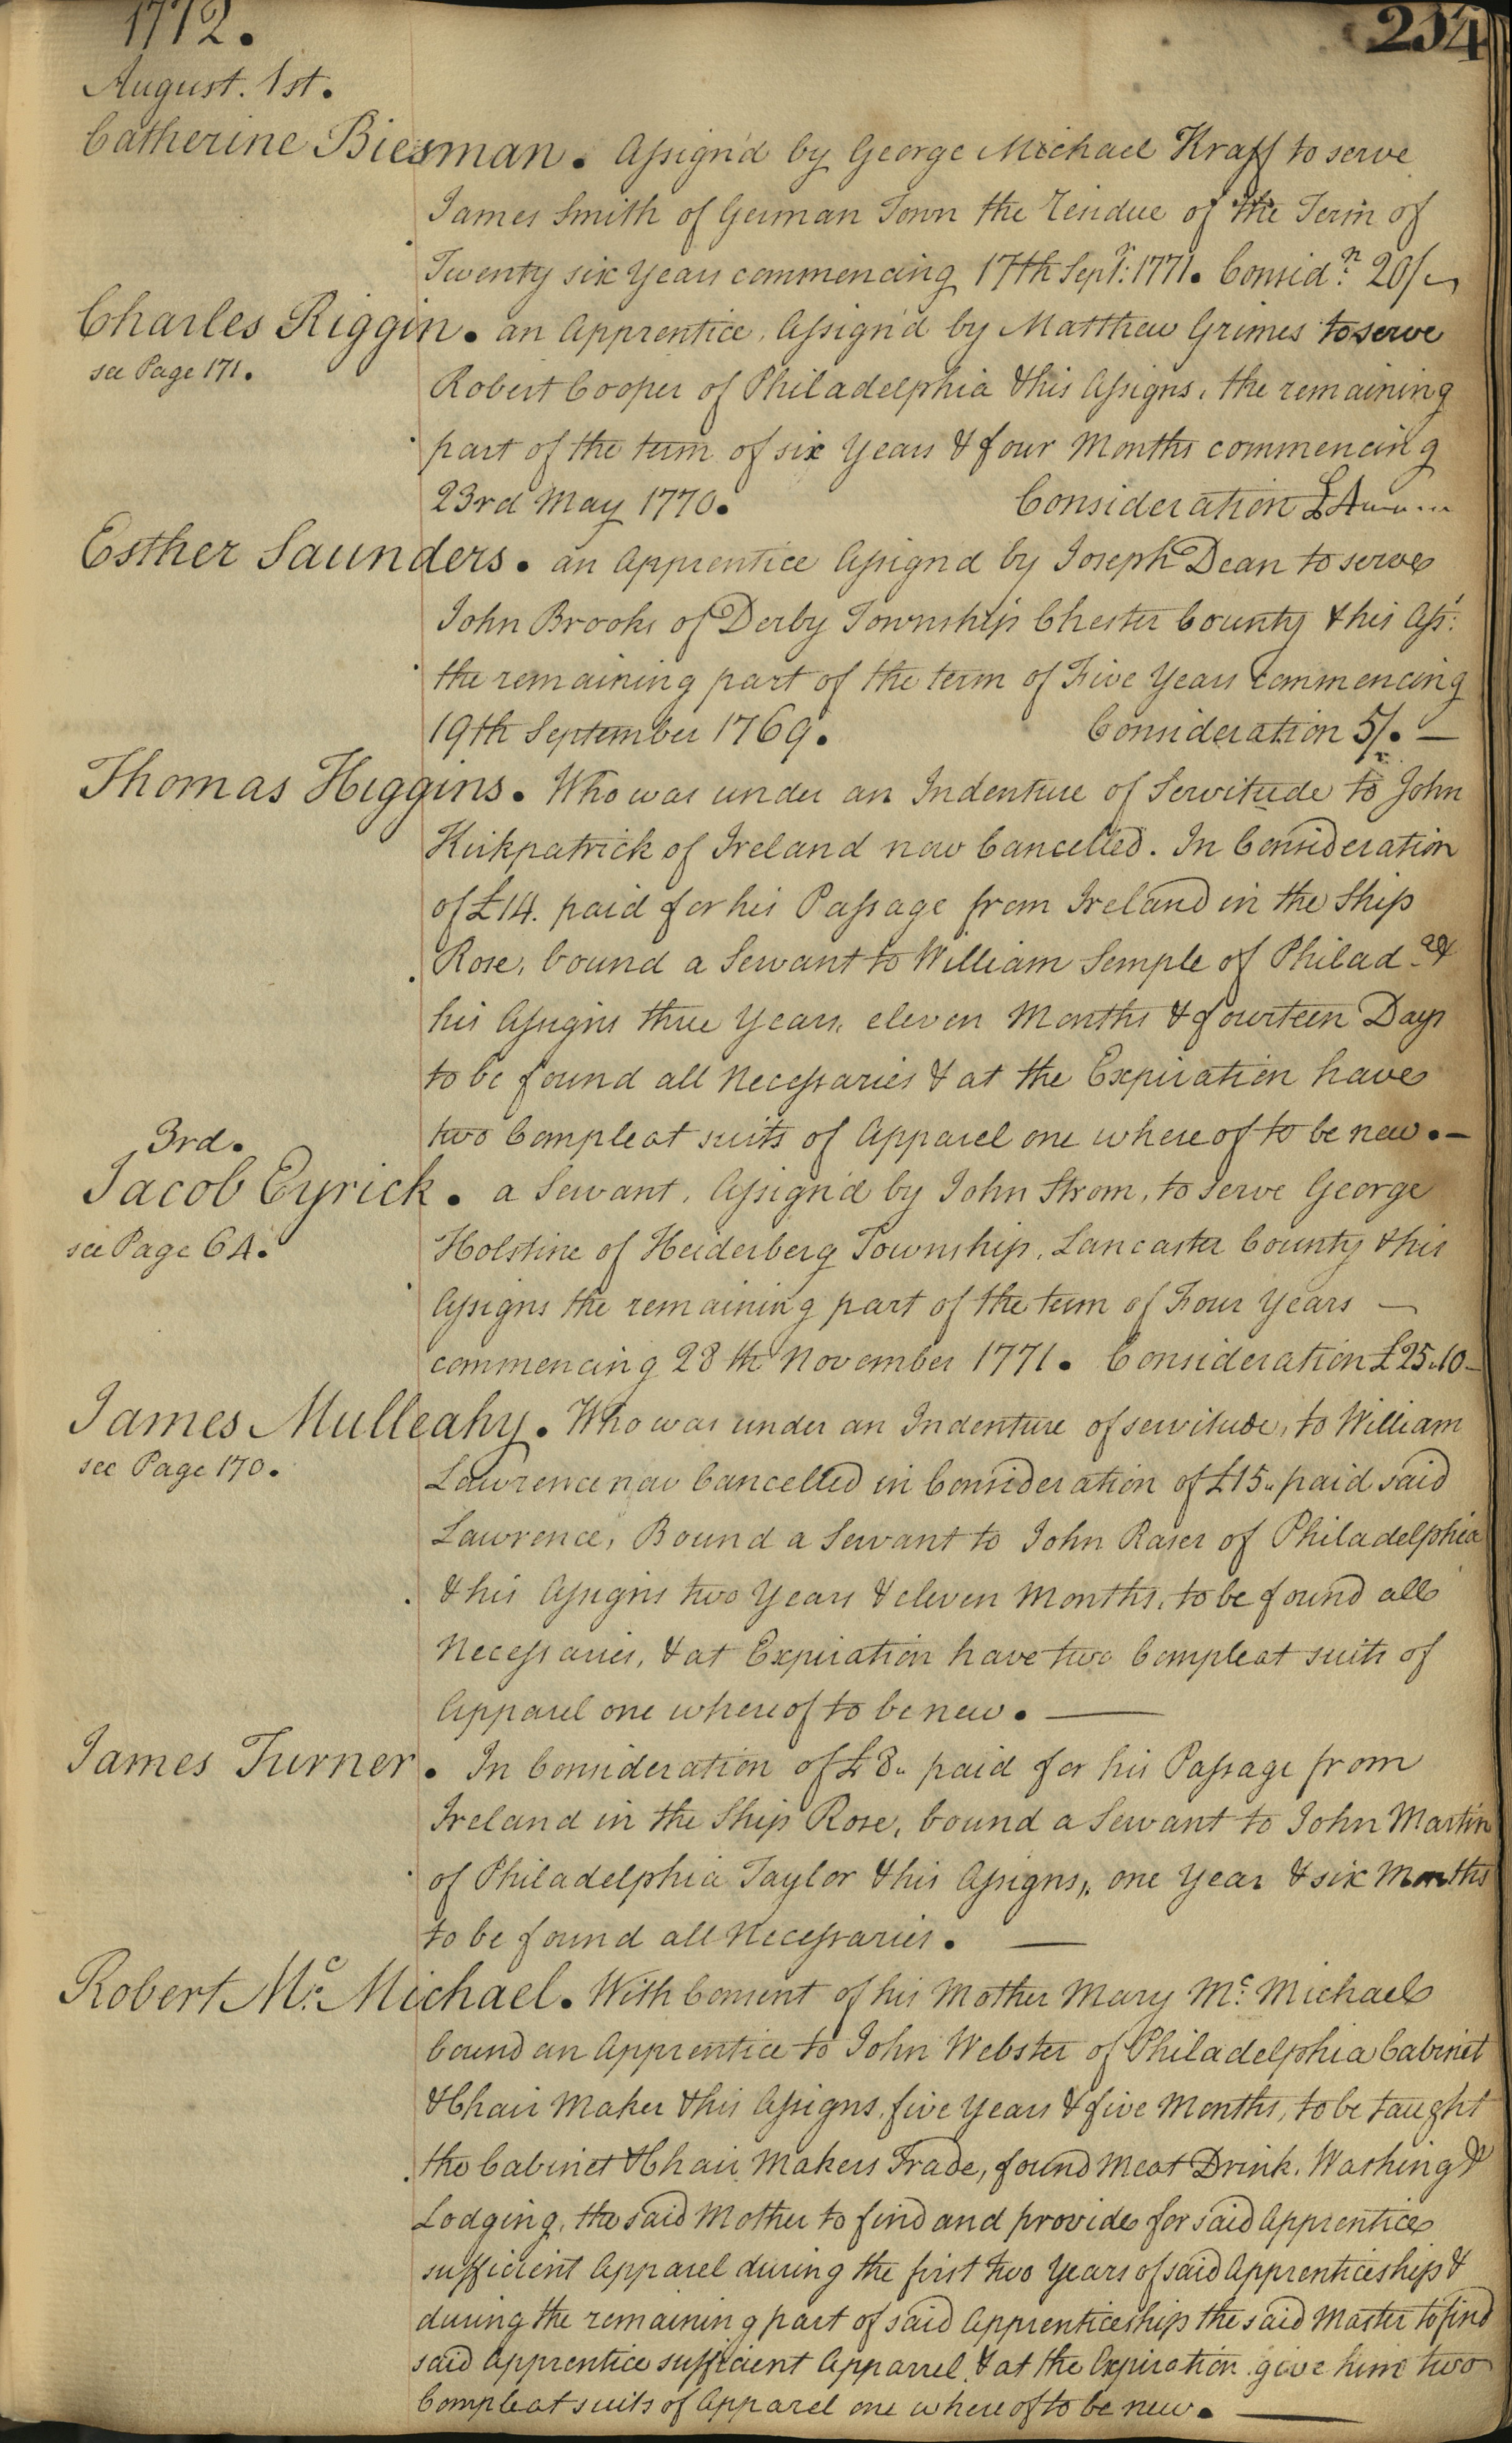 1772.
234
August. 1st.
Catherine Biesman. Assign'd by George Michael Kraff to serve
James Smith of German Town the residue of the Term of
Twenty six Years commencing 17th Sepr: 1771. Considn. 20/
Charles Riggin. an Apprentice, Assign'd by Matthew Grimes to serve
see Page 171.
Robert Cooper of Philadelphia & his Assigns, the remaining
part of the term of six Years & four Months commencing
23rd May 1770. Consideration £4
Esther Saunders. an Apprentice Assign'd by Joseph Dean to serve
John Brooks of Derby Township Chester County & his Ass:
the remaining part of the term of Five Years commencing
19th September 1769. Consideration 5/. —
Thomas Higgins. Who was under an Indenture of Servitude to John
Kirkpatrick of Ireland now Cancelled. In Consideration
of £14. paid for his Passage from Ireland in the Ship
Rose, bound a Servant to William Semple of Philada &
his Assigns three Years, eleven Months & fourteen Days
to be found all Necessaries & at the Expiration have
two Compleat suits of Apparel one whereof to be new. —
3rd.
Jacob Eyrick. a Servant, Assign'd by John Strom, to serve George
see Page 64.
Holstine of Heiderberg Township, Lancaster County & his
Assigns the remaining part of the term of Four Years —
commencing 28th November 1771. Consideration £25.10 —
James Mulleahy. Who was under an Indenture of servitude, to William
see Page 170.
Lawrence now Cancelled in Consideration of £15.. paid said
Lawrence, Bound a Servant to John Raser of Philadelphia
& his Assigns two Years & eleven Months, to be found all
Necessaries, & at Expiration have two Compleat suits of
Apparel one whereof to be new. —
James Turner. In Consideration of £8.. paid for his Passage from
Ireland in the Ship Rose, bound a Servant to John Martin
of Philadelphia Taylor & his Assigns, one Year & six Months
to be found all Necessaries. —
Robert Mc. Michael. With Consent of his Mother Mary Mc. Michael
bound an Apprentice to John Webster of Philadelphia Cabinet
& Chair Maker & his Assigns, five Years & five Months, to be taught
the Cabinet & Chair Makers Trade, found Meat Drink, Washing &
Lodging, the said Mother to find and provide for said Apprentice
sufficient Apparel during the first two Years of said Apprenticeship &
during the remaining part of said Apprenticeship the said Master to find
said Apprentice sufficient Apparrel, & at the Expiration give him two
Compleat suits of Apparel one whereof to be new. —